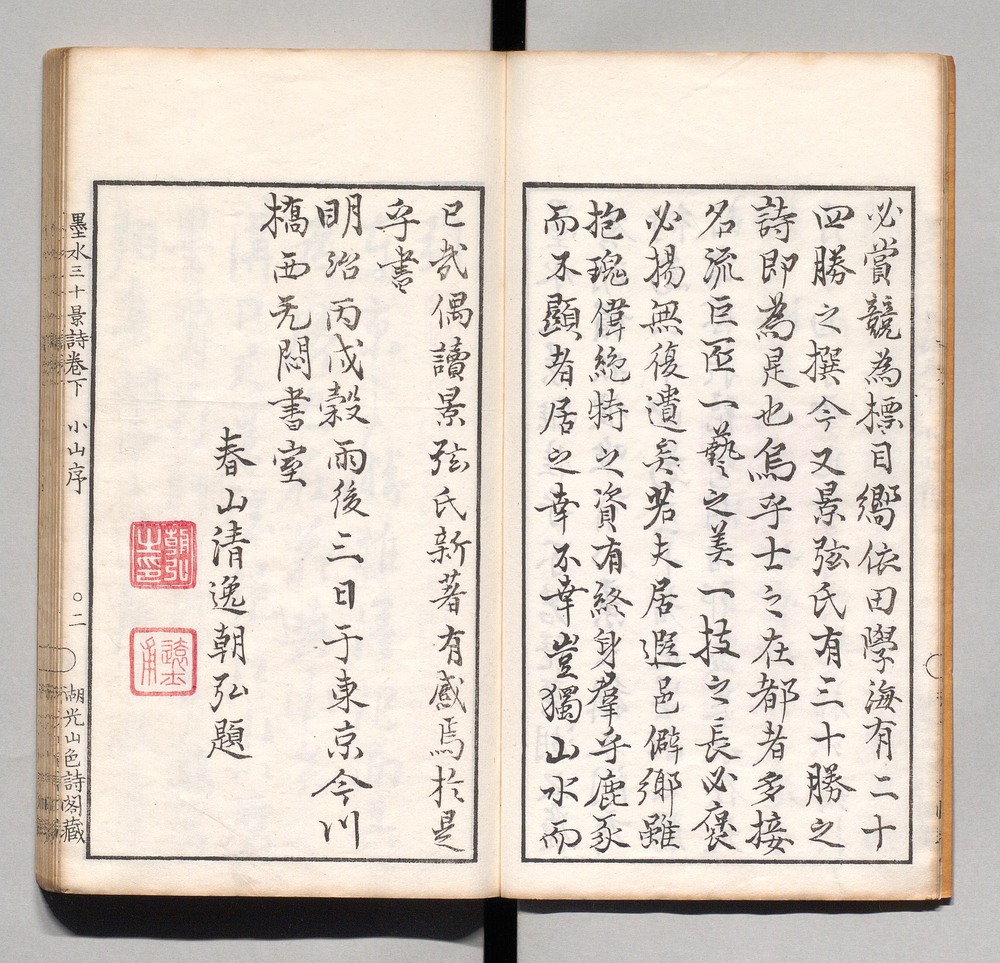 必賞競為標目嚮依田學海有二十
四勝之撰今又景弦氏有三十勝之
詩即為是也烏乎士之在都者多接
名流巨匠一藝之美一技之長必褒
必揚無復遺矣若夫居遐邑僻鄉雖
抱瑰偉絶特之資有終身羣乎鹿豕
而不顯者居之幸不幸豈獨山水而
已哉偶讀景弦氏新著有感焉於是
乎書
明治丙戌穀雨後三日于東京今川
橋西无悶書室
春山清逸朝弘題
朝弘之印
墨水三十景詩卷下 小山序 〇二 湖光山色詩閣藏